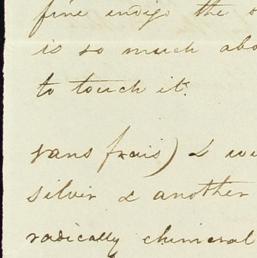 fine indigo the
is so much abo
to touch it.
sans frais) & we
silver & another
radically chimeral